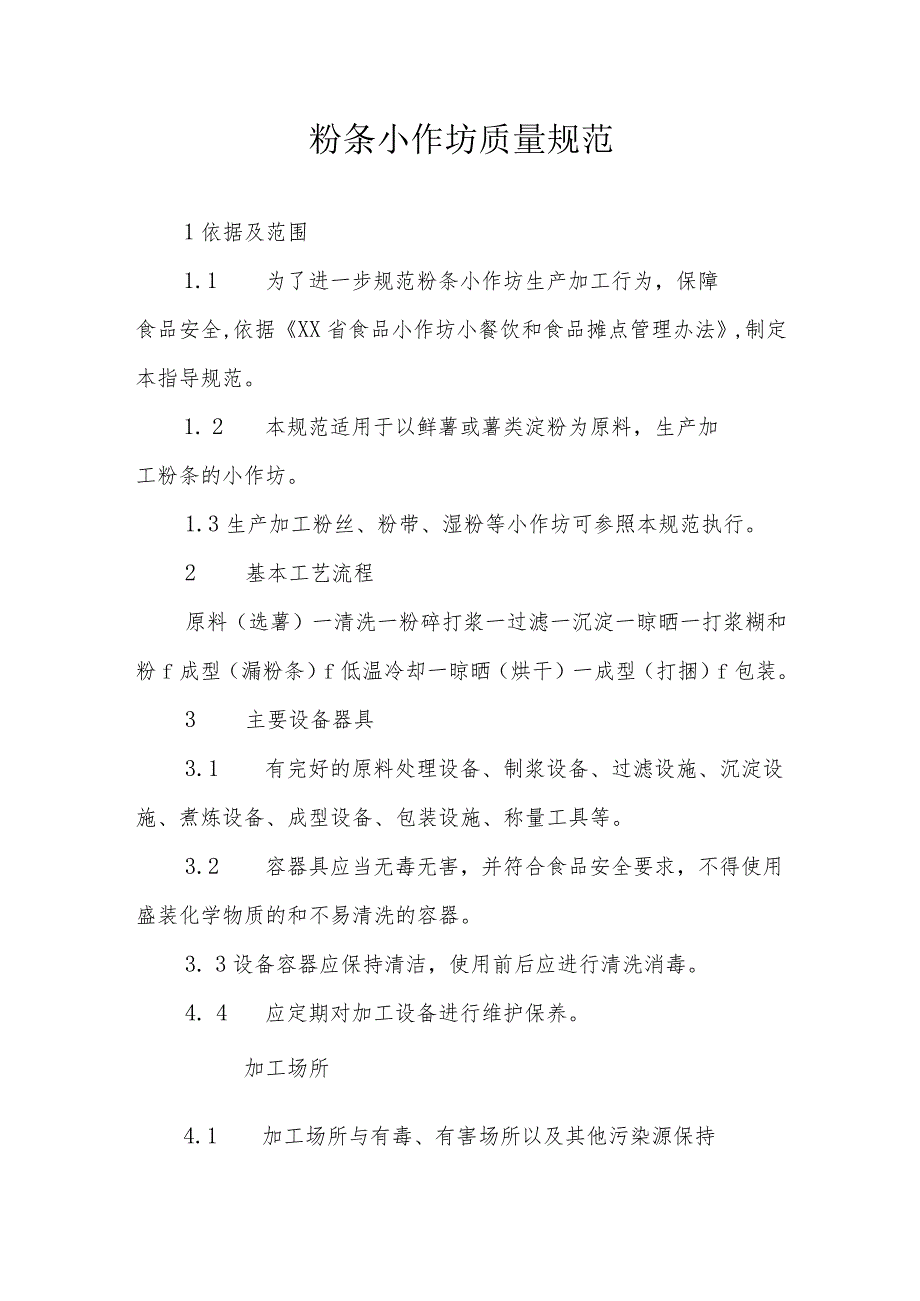 粉条小作坊质量规范
1依据及范围
1.1 为了进一步规范粉条小作坊生产加工行为，保障
食品安全,依据《XX省食品小作坊小餐饮和食品摊点管理办法》,制定
本指导规范。
1. 2 本规范适用于以鲜薯或薯类淀粉为原料，生产加
工粉条的小作坊。
1.3生产加工粉丝、粉带、湿粉等小作坊可参照本规范执行。
2 基本工艺流程
原料（选薯）一清洗一粉碎打浆一过滤一沉淀一晾晒一打浆糊和
粉f成型（漏粉条）f低温冷却一晾晒（烘干）一成型（打捆）f包装。
3 主要设备器具
3.1 有完好的原料处理设备、制浆设备、过滤设施、沉淀设
施、煮炼设备、成型设备、包装设施、称量工具等。
3.2 容器具应当无毒无害，并符合食品安全要求，不得使用
盛装化学物质的和不易清洗的容器。
3. 3设备容器应保持清洁，使用前后应进行清洗消毒。
4. 4 应定期对加工设备进行维护保养。
加工场所
4.1 加工场所与有毒、有害场所以及其他污染源保持